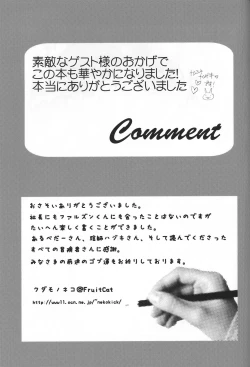 素敵なゲスト様のおかげで
この本も華やかになりました!
本当にありがとうございました
Comment
おさそいありがとうございました。
社長にもファルズンくんにも会ったことはないのですが
たいへん楽しく書くことができました。
あるべだーさん、
さん、そして読んでくださった
すべての皆様に感謝。
みなさまの前途のゴブ運もお祈りしております。
クダモノネコ@FruitCat
http://www11.ocn.ne.jp/~nekokick/